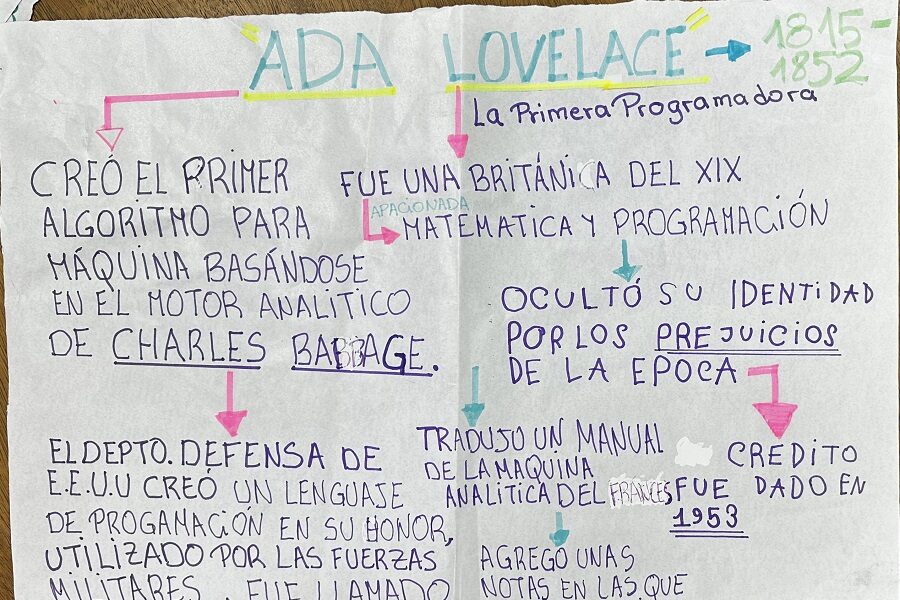 "ADA LOVELACE" → 1815-
1852
La Primera Programadora
CREÓ EL PRIMER
ALGORITMO PARA
MÁQUINA BASÁNDOSE
EN EL MOTOR ANALITICO
DE CHARLES BABBAGE.
FUE UNA BRITÁNICA DEL XIX
APACIONADA
MATEMATICA Y PROGRAMACIÓN
OCULTÓ SU IDENTIDAD
POR LOS PREJUICIOS
DE LA EPOCA
EL DEPTO. DEFENSA DE
E.E.U.U CREÓ UN LENGUAJE
DE PROGAMACIÓN EN SU HONOR,
UTILIZADO POR LAS FUERZAS
MILITARES. FUE LLAMADO
TRADUJO UN MANUAL
DE LA MAQUINA
ANALITICA DEL FRANCES,
AGREGO UNAS
NOTAS EN LAS QUE
CREDITO
FUE DADO EN
1953